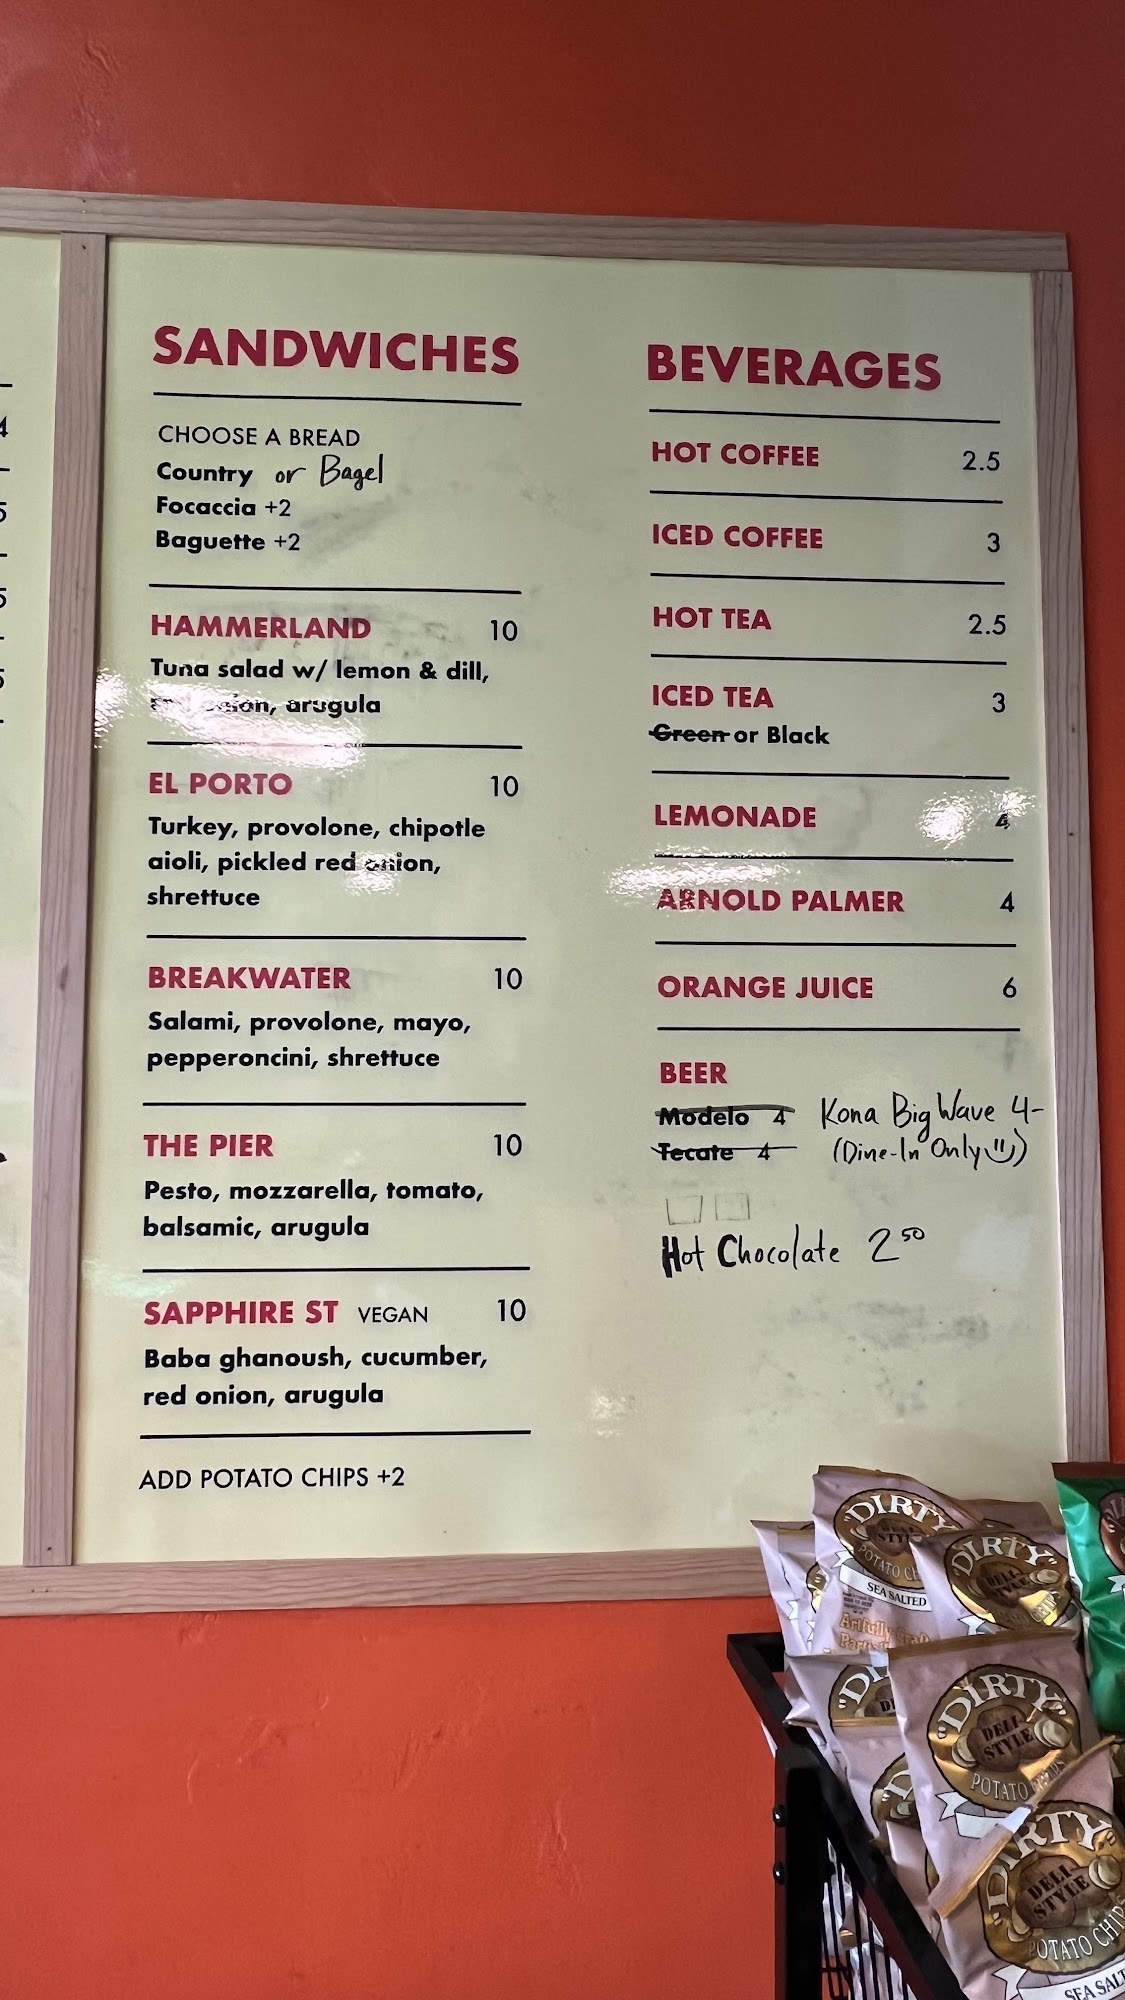 SANDWICHES
CHOOSE A BREAD
Country or Bagel
Focaccia +2
Baguette +2
HAMMERLAND 10
Tuna salad w/ lemon & dill,
onion, arugula
EL PORTO 10
Turkey, provolone, chipotle
aioli, pickled red onion,
shrettuce
BREAKWATER 10
Salami, provolone, mayo,
pepperoncini, shrettuce
THE PIER 10
Pesto, mozzarella, tomato,
balsamic, arugula
SAPPHIRE ST VEGAN 10
Baba ghanoush, cucumber,
red onion, arugula
ADD POTATO CHIPS +2
BEVERAGES
HOT COFFEE 2.5
ICED COFFEE 3
HOT TEA 2.5
ICED TEA 3
Green or Black
LEMONADE 4
ARNOLD PALMER 4
ORANGE JUICE 6
BEER
Modelo 4 Kona Big Wave 4-
Tecate 4 (Dine-In Only)
Hot Chocolate 2.50
"DIRTY"
DELI
STYLE
POTATO
SEA SALTED
Artfully
"DIRTY"
DELI-
STYLE
"DIRTY"
DELI-
STYLE
POTATO CHIPS
DIRTY"
DELI-
STYLE
POTATO CHIPS